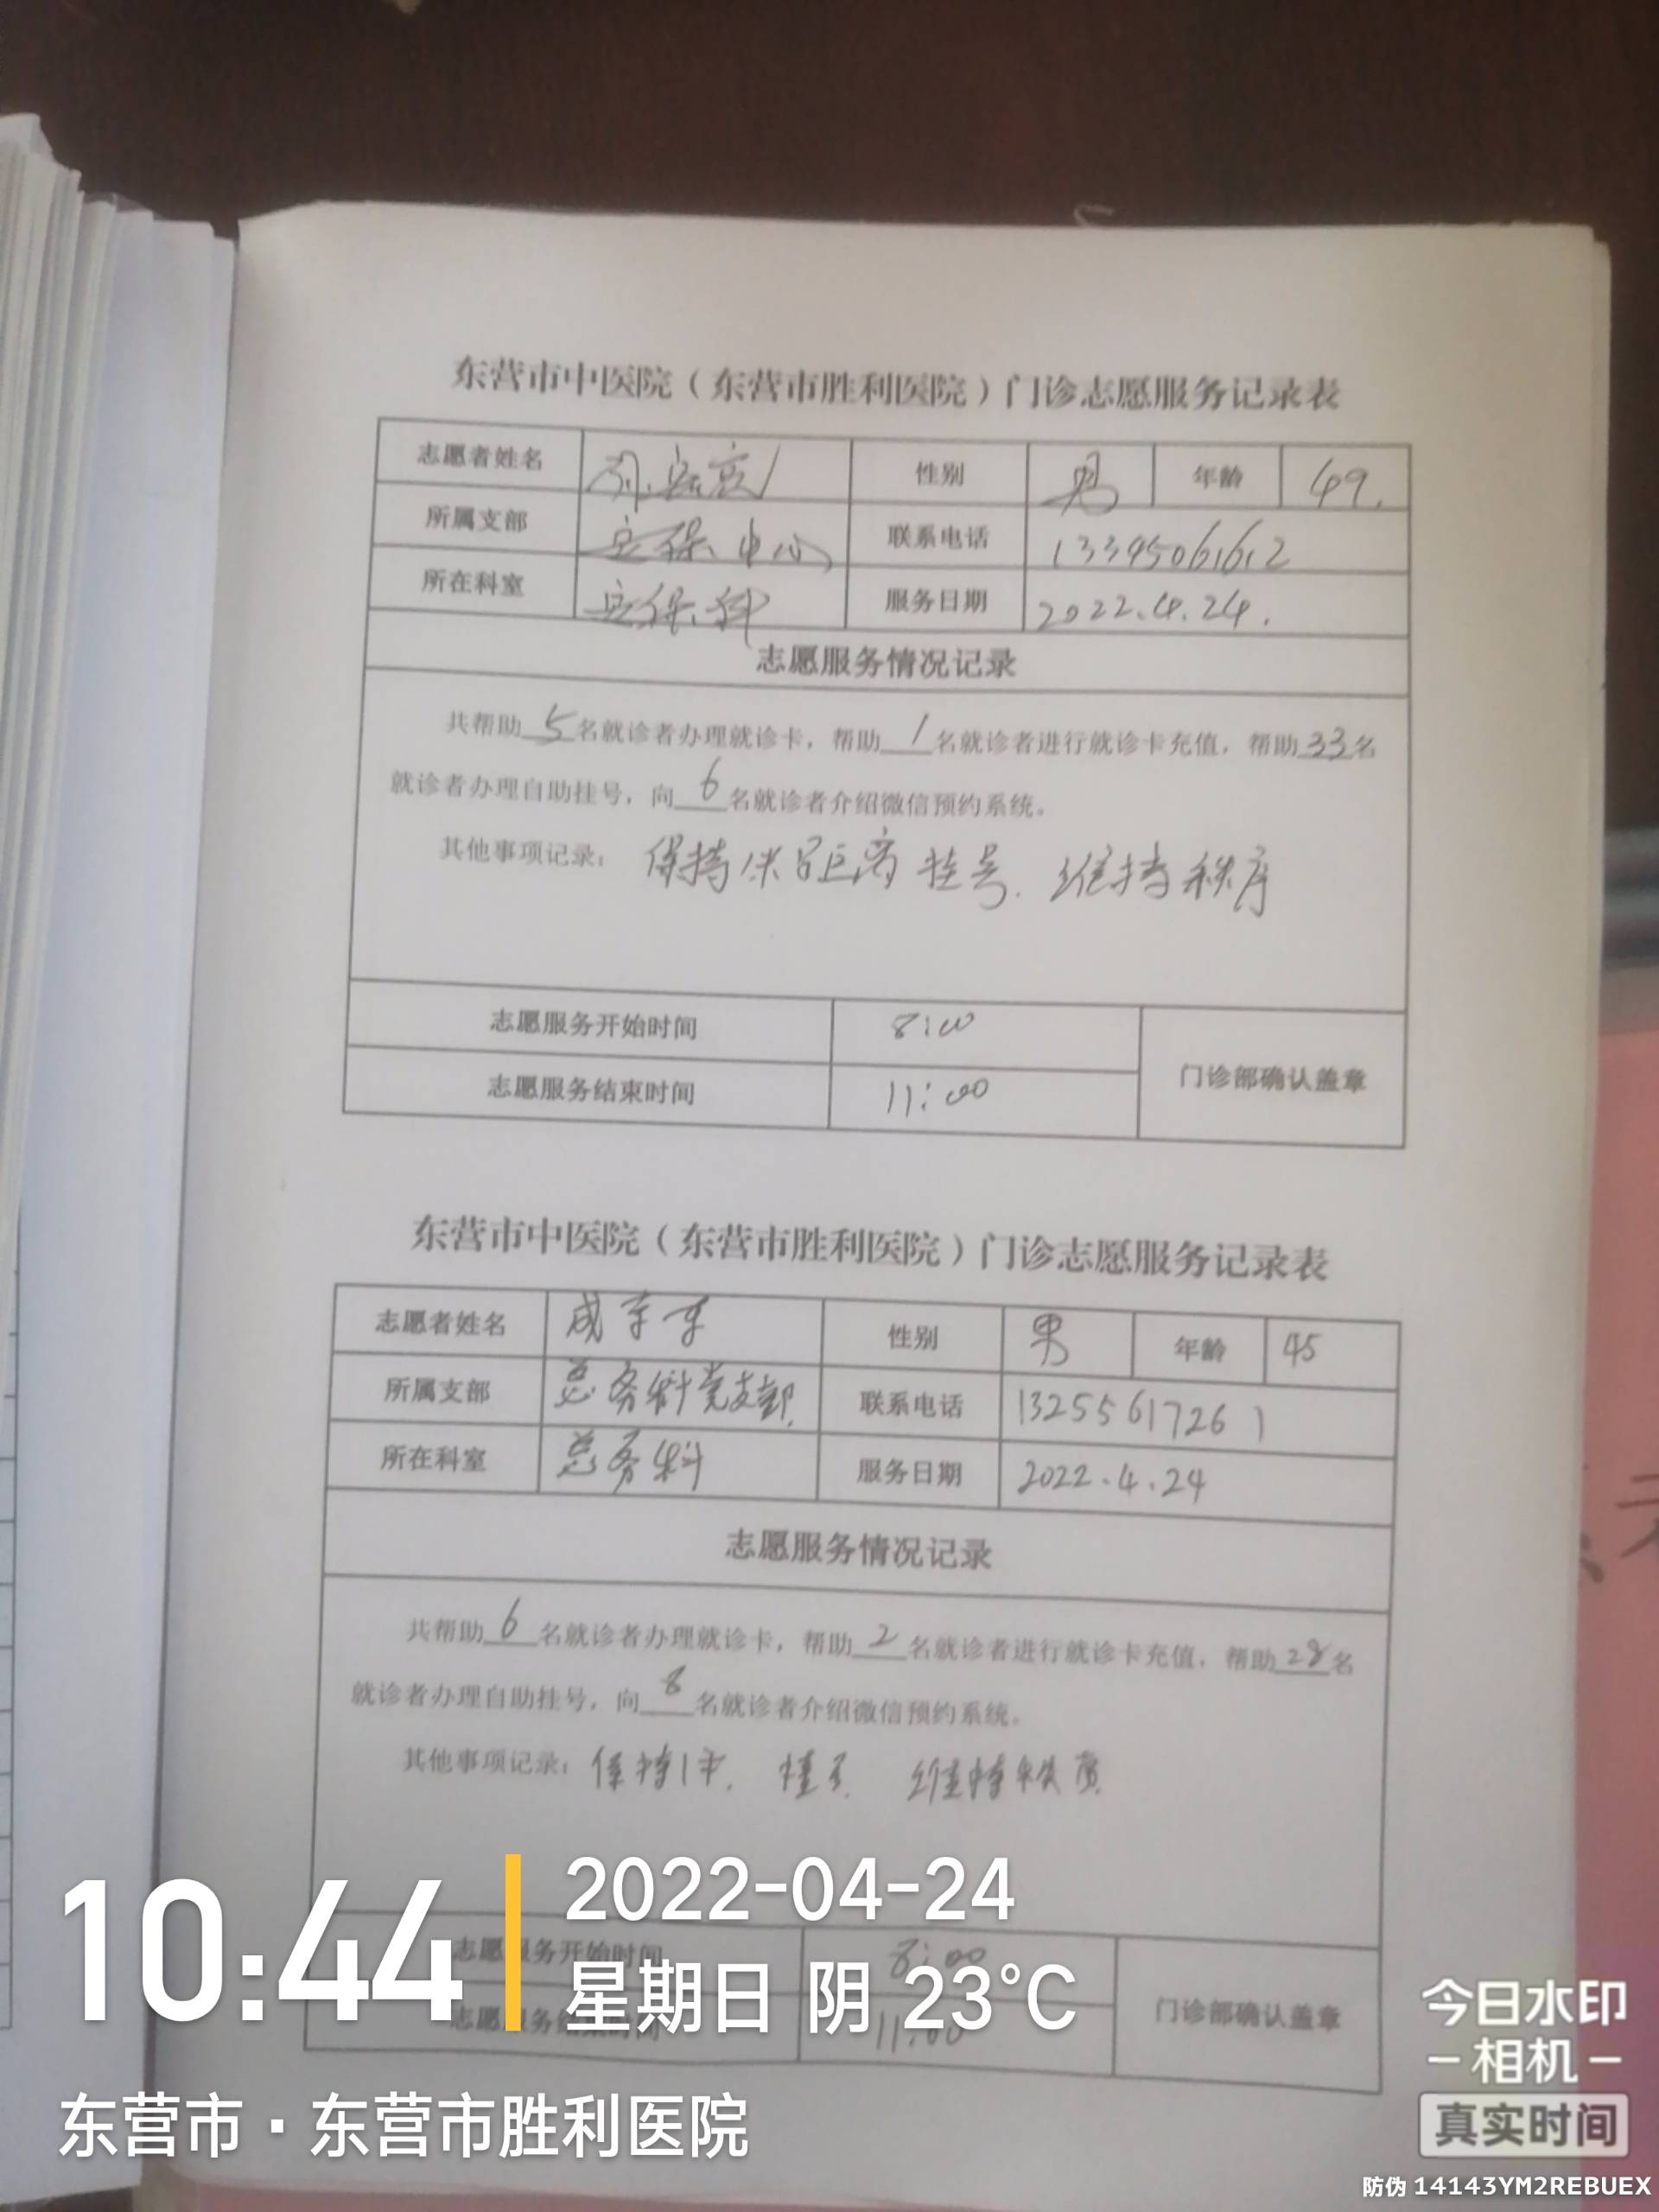 东营市中医院（东营市胜利医院）门诊志愿服务记录表
志愿者姓名 性别 男 年龄 49.
所属支部 安保中心 联系电话 13395061612
所在科室 安保科 服务日期 2022.4.24.
志愿服务情况记录
共帮助5名就诊者办理就诊卡，帮助1名就诊者进行就诊卡充值，帮助33名
就诊者办理自助挂号，向6名就诊者介绍微信预约系统。
其他事项记录： 保持1米距离挂号. 维持秩序
志愿服务开始时间 8:00
志愿服务结束时间 11:00
门诊部确认盖章
东营市中医院（东营市胜利医院）门诊志愿服务记录表
志愿者姓名 性别 男 年龄 45
所属支部 总务科党支部 联系电话 13255617261
所在科室 总务科 服务日期 2022.4.24
志愿服务情况记录
共帮助6名就诊者办理就诊卡，帮助2名就诊者进行就诊卡充值，帮助28名
就诊者办理自助挂号，向8名就诊者介绍微信预约系统。
其他事项记录： 保持1米. 挂号. 维持秩序
志愿服务开始时间 8:00
志愿服务结束时间 11:00
门诊部确认盖章
10:44
2022-04-24
星期日 阴 23°C
东营市·东营市胜利医院
今日水印
-相机-
真实时间
防伪 14143YM2REBUEX